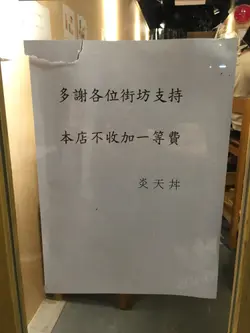 多謝各位街坊支持
本店不收加一等費
炎天丼